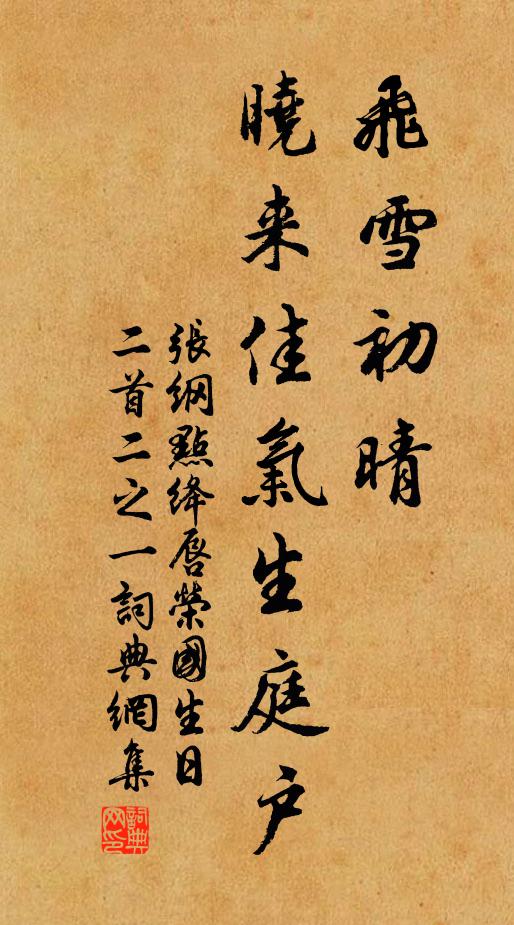 飛雪初晴
曉来佳氣生庭户
張綱點绛唇榮國生日
二首二之一詞典網集
詞典网印